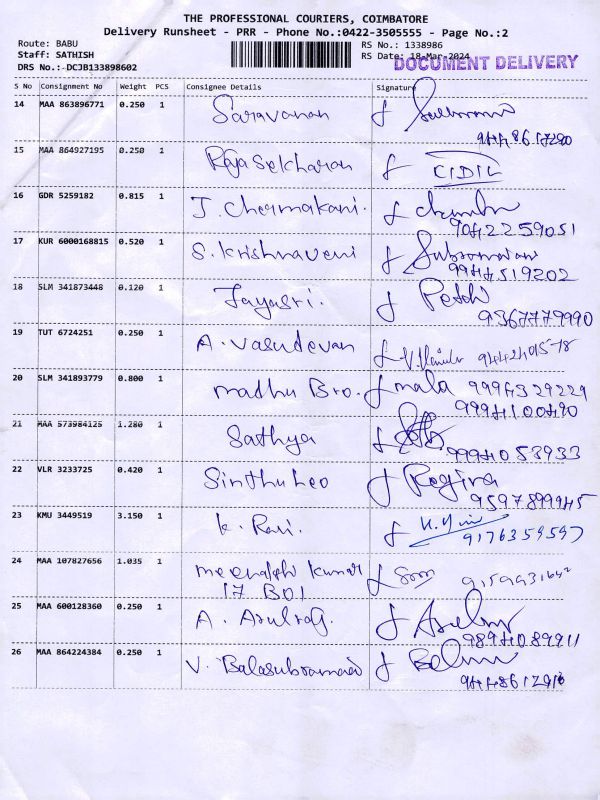 THE PROFESSIONAL COURIERS, COIMBATORE
Delivery Runsheet - PRR - Phone No.:0422-3505555 - Page No.:2
Route: BABU
RS No.: 1338986
Staff: SATHISH
RS Date: 18-Mar-2024
DOCUMENT DELIVERY
DRS No.:-DCJB133898602
S No Consignment No Weight PCS Consignee Details Signature
14 MAA 863896771 0.250 1 Saravanan
15 MAA 864927195 0.250 1 Rajaselcharan CIDIL
16 GDR 5259182 0.815 1 J. Chermakani.
9042259051
17 KUR 6000168815 0.520 1 S. Krishnaveni
9944519202
18 SLM 341873448 0.120 1 Jayasri.
9367779990
19 TUT 6724251 0.250 1 A. Vasudevan
20 SLM 341893779 0.800 1 madhu Bro. mala 9994329229
9994100490
21 MAA 573984125 1.280 1 Sathya
9994053933
22 VLR 3233725 0.420 1 Sinthu Leo Regina
9597899945
23 KMU 3449519 3.150 1 K. Ravi.
9176359597
24 MAA 107827656 1.035 1 meenakshi kumar
17 BO1
25 MAA 600128360 0.250 1 A.
9894089911
26 MAA 864224384 0.250 1 V. Balasubramani